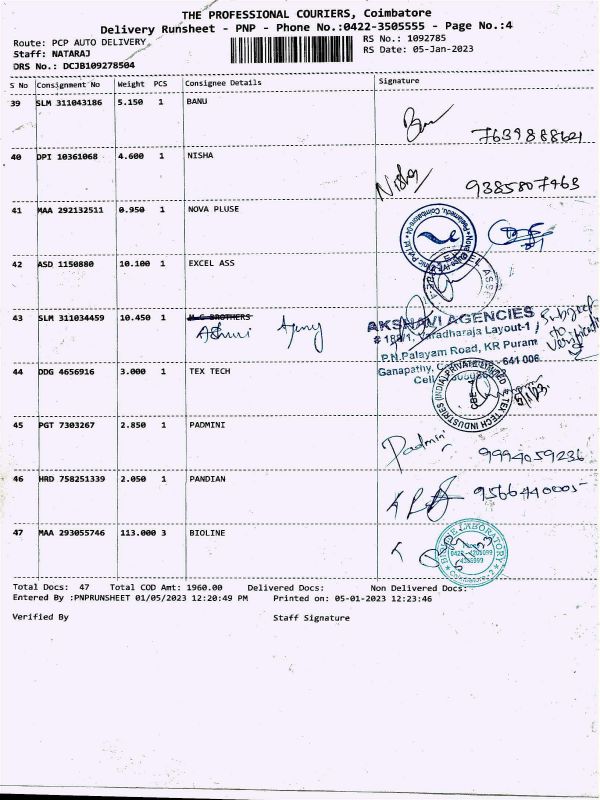 THE PROFESSIONAL COURIERS, Coimbatore
Delivery Runsheet - PNP - Phone No.:0422-3505555 - Page No.:4
Route: PCP AUTO DELIVERY
RS No.: 1092785
Staff: NATARAJ
RS Date: 05-Jan-2023
DRS No.: DCJB109278504
S No Consignment No Weight PCS Consignee Details Signature
39 SLM 311043186 5.150 1 BANU
7639888621
40 DPI 10361068 4.600 1 NISHA
Nisha 9385807463
41 MAA 292132511 0.950 1 NOVA PLUSE
42 ASD 1150880 10.100 1 EXCEL ASS
43 SLM 311034459 10.450 1 M G BROTHERS
AKSHAVI AGENCIES
# 188/1, Varadharaja Layout-1
P.N.Palayam Road, KR Puram
Ganapathy, 641 006
Cell
Subject to verification
44 DDG 4656916 3.000 1 TEX TECH
TEX TECH INDUSTRIES (INDIA) PRIVATE LIMITED
CBE
5/1/23
45 PGT 7303267 2.850 1 PADMINI
Padmini 9994059236
46 HRD 758251339 2.050 1 PANDIAN
9566440005
47 MAA 293055746 113.000 3 BIOLINE
LABORATORY
Total Docs: 47 Total COD Amt: 1960.00 Delivered Docs: Non Delivered Docs:
Entered By :PNPRUNSHEET 01/05/2023 12:20:49 PM Printed on: 05-01-2023 12:23:46
Verified By Staff Signature